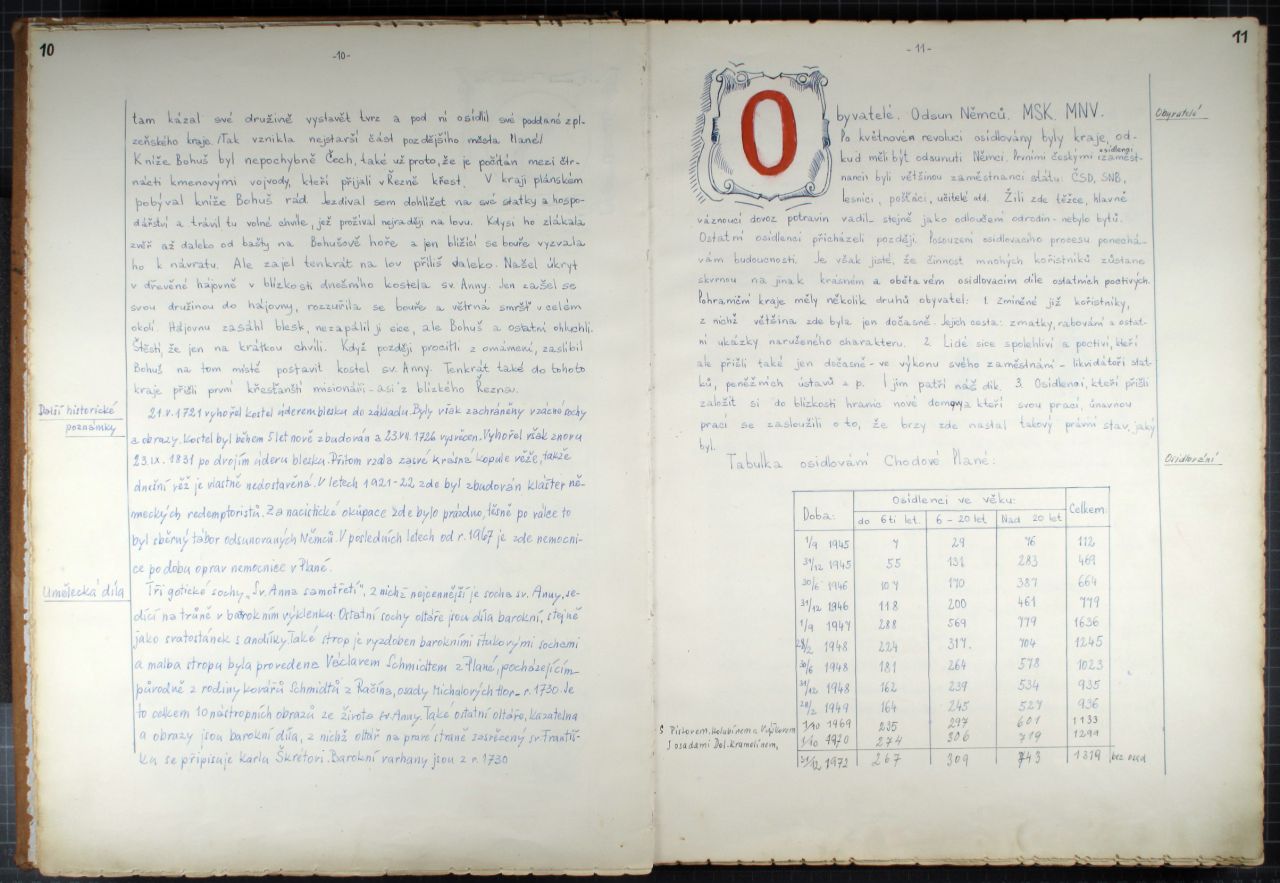 10
-10-
tam kázal své družině vystavět tvrz a pod ni osídlil své poddané z pl-
zeňského kraje. /Tak vznikla nejstarší část pozdějšího města Plané/
Kníže Bohuš byl nepochybně Čech, také už proto, že je počítán mezi čtr-
nácti kmenovými vojvody, kteří přijali v Řezně křest. V kraji plánském
pobýval kníže Bohuš rád. Jezdíval sem dohlížet na své statky a hospo-
dářství a trávil tu volné chvíle, jež prožíval nejraději na lovu. Kdysi ho zlákala
zvěř až daleko od bašty na Bohušově hoře a jen blížící se bouře vyzvala
ho k návratu. Ale zajel tenkrát na lov příliš daleko. Našel úkryt
v dřevěné hájovně v blízkosti dnešního kostela sv. Anny. Jen zašel se
svou družinou do hájovny, rozzuřila se bouře a větrná smršť v celém
okolí. Hájovnu zasáhl blesk, nezapálil ji sice, ale Bohuš a ostatní ohluchli.
Štěstí, že jen na krátkou chvíli. Když později procitli z omámení, zaslíbil
Bohuš na tom místě postavit kostel sv. Anny. Tenkrát také do tohoto
kraje přišli první křesťanští misionáři - asi z blízkého Řezna.
Další historické
poznámky
21.v. 1721 vyhořel kostel úderem blesku do základu. Byly však zachráněny vzácné sochy
a obrazy. Kostel byl během 5 let nově zbudován a 23.VII. 1726 vysvěcen. Vyhořel však znovu
23.IX. 1831 po dvojím úderu blesku. Přitom vzala zasvé krásná kopule věže, takže
dnešní věž je vlastně nedostavěná. V letech 1921-22 zde byl zbudován klášter ně-
meckých redemptoristů. Za nacistické okupace zde bylo prázdno, těsně po válce to
byl sběrný tábor odsunovaných Němců. V posledních letech od r. 1967 je zde nemocni-
ce po dobu oprav nemocnice v Plané.
Umělecká díla
Tři gotické sochy „Sv. Anna samotřetí", z nichž nejcennější je socha sv. Anny, se-
dící na trůně v barokním výklenku. Ostatní sochy oltáře jsou díla barokní, stejně
jako svatostánek s andílky. Také strop je vyzdoben barokními štukovými sochami
a malba stropu byla provedena Václavem Schmidtem z Plané, pocházejícím-
původně z rodiny kovářů Schmidtů z Račína, osady Michalových Hor - r. 1730. Je
to celkem 10 nástropních obrazů ze života sv. Anny. Také ostatní oltáře, kazatelna
a obrazy jsou barokní díla, z nichž oltář na pravé straně zasvěcený sv. Františ-
ku se připisuje Karlu Škrétovi. Barokní varhany jsou z r. 1730
11
-11-
Obyvatelé
Obyvatelé. Odsun Němců. MSK. MNV.
Po květnové revoluci osídlovány byly kraje, od-
kud měli být odsunuti Němci. Prvními českými osídlenci i zaměst-
nanci byli většinou zaměstnanci státu: ČSD, SNB,
lesníci, pošťáci, učitelé atd. Žili zde těžce, hlavně
váznoucí dovoz potravin vadil - stejně jako odloučení od rodin - nebylo bytů.
Ostatní osídlenci přicházeli později. Posouzení osídlovacího procesu ponechá-
vám budoucnosti. Je však jisté, že činnost mnohých kořistníků zůstane
skvrnou na jinak krásném a obětavém osídlovacím díle ostatních poctivých.
Pohraniční kraje měly několik druhů obyvatel: 1. Zmíněné již kořistníky,
z nichž většina zde byla jen dočasně. Jejich cesta: zmatky, rabování a ostat-
ní ukázky narušeného charakteru. 2. Lidé sice spolehliví a poctiví, kteří
ale přišli také jen dočasně - ve výkonu svého zaměstnání - likvidátoři stat-
ků, peněžních ústavů a p. I jim patří náš dík. 3. Osídlenci, kteří přišli
založit si do blízkosti hranic nové domovy a kteří svou prací, únavnou
prací se zasloužili o to, že brzy zde nastal takový právní stav, jaký
byl.
Osidlování
Tabulka osidlování Chodové Plané:
Doba: Osídlenci ve věku: Celkem:
do 6ti let. 6 - 20 let Nad 20 let
1/9 1945 7 29 76 112
31/12 1945 55 131 283 469
30/6 1946 107 170 387 664
31/12 1946 118 200 461 779
1/9 1947 288 569 779 1636
28/2 1948 224 317. 704 1245
30/6 1948 181 264 578 1023
31/12 1948 162 239 534 935
28/2 1949 164 245 527 936
S Pístovem, Holubínem a Výškovem 1/10 1969 235 297 601 1133
S osadami Dol. Kramolínem, 1/10 1970 274 306 719 1299
31/12 1972 267 309 743 1319 bez osad